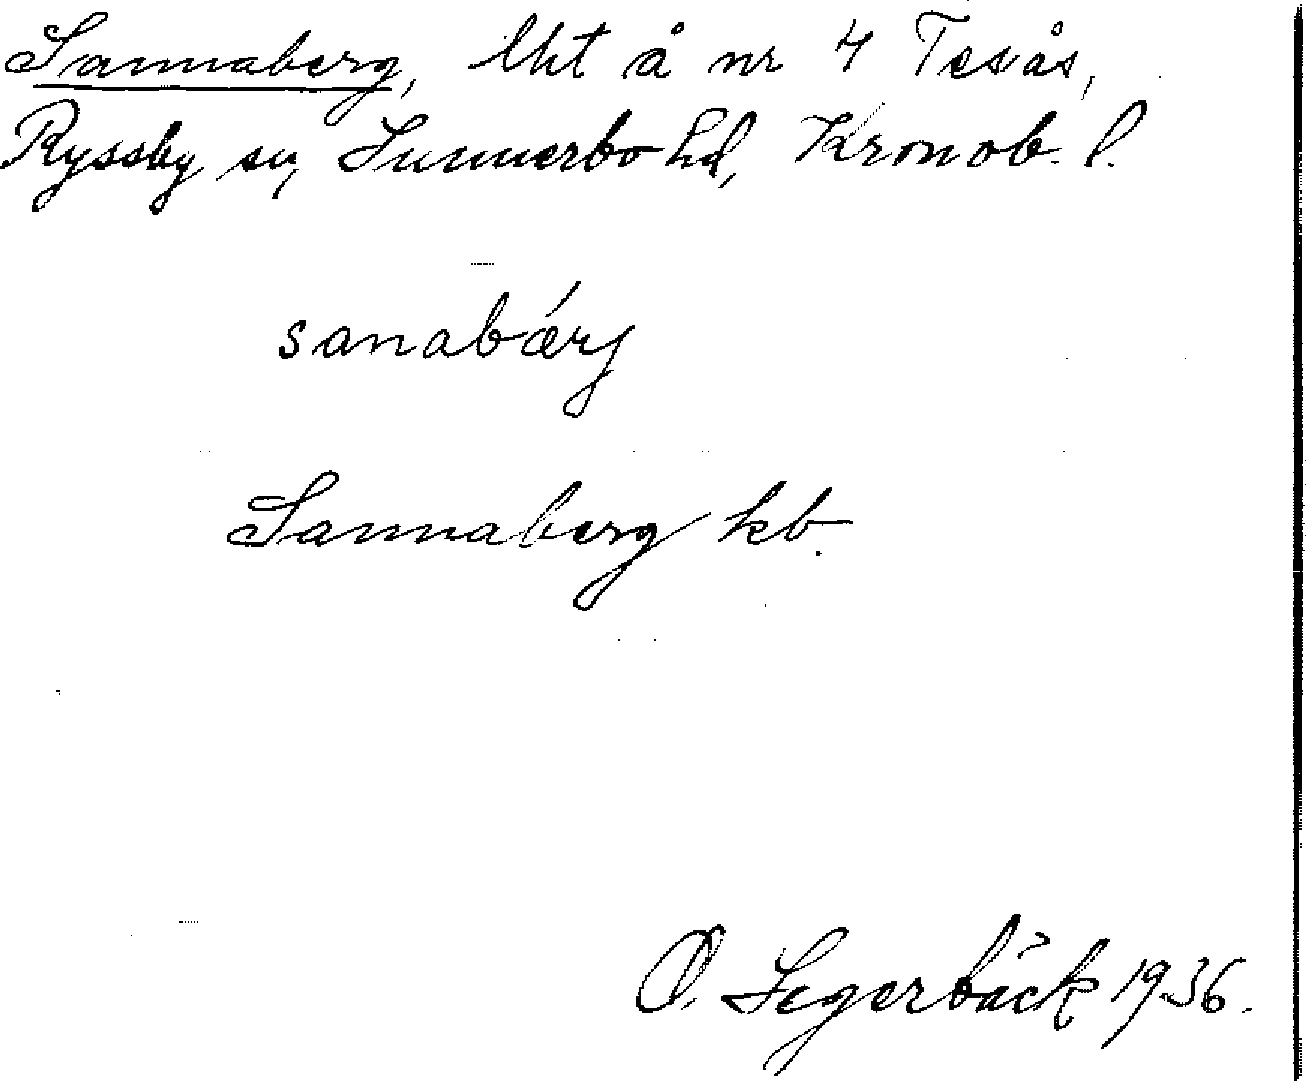 Sannaberg, lht å nr 4 Tesås,
Ryssby sn, Sunnerbo hd, Kronob. l.
sanabǽrj
Sannaberg kb.
O. Segerbäck 1936.